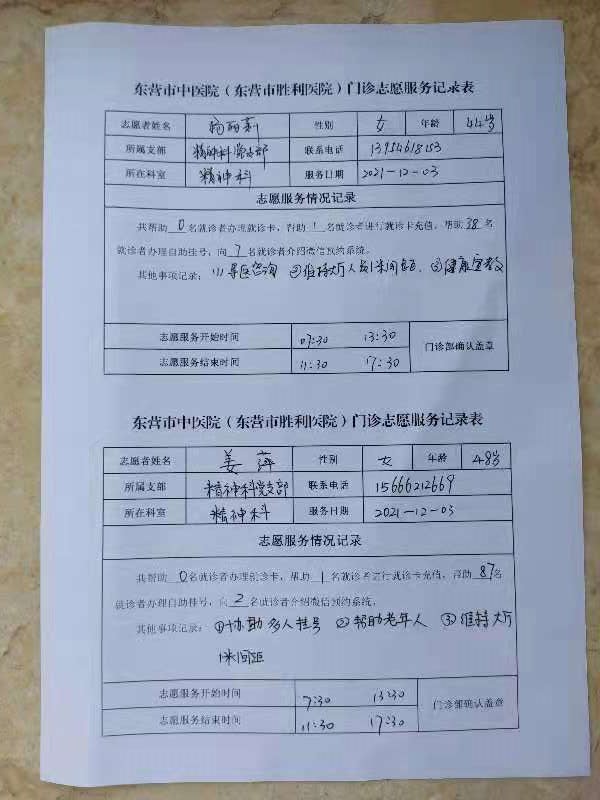 东营市中医院（东营市胜利医院）门诊志愿服务记录表
志愿者姓名 杨丽莉 性别 女 年龄 44岁
所属支部 精神科党支部 联系电话 13954618153
所在科室 精神科 服务日期 2021-12-03
志愿服务情况记录
共帮助0名就诊者办理就诊卡，帮助1名就诊者进行就诊卡充值，帮助38名
就诊者办理自助挂号，向7名就诊者介绍微信预约系统。
其他事项记录：(1)导医咨询 ②维持大厅人员1米间距、③健康宣教
志愿服务开始时间 07:30 13:30
志愿服务结束时间 11:30 17:30
门诊部确认盖章
东营市中医院（东营市胜利医院）门诊志愿服务记录表
志愿者姓名 姜萍 性别 女 年龄 48岁
所属支部 精神科党支部 联系电话 15666212669
所在科室 精神科 服务日期 2021-12-03
志愿服务情况记录
共帮助0名就诊者办理就诊卡，帮助1名就诊者进行就诊卡充值，帮助87名
就诊者办理自助挂号，向2名就诊者介绍微信预约系统。
其他事项记录：①协助多人挂号 ②帮助老年人 ③维持大厅
1米间距
志愿服务开始时间 7:30 13:30
志愿服务结束时间 11:30 17:30
门诊部确认盖章